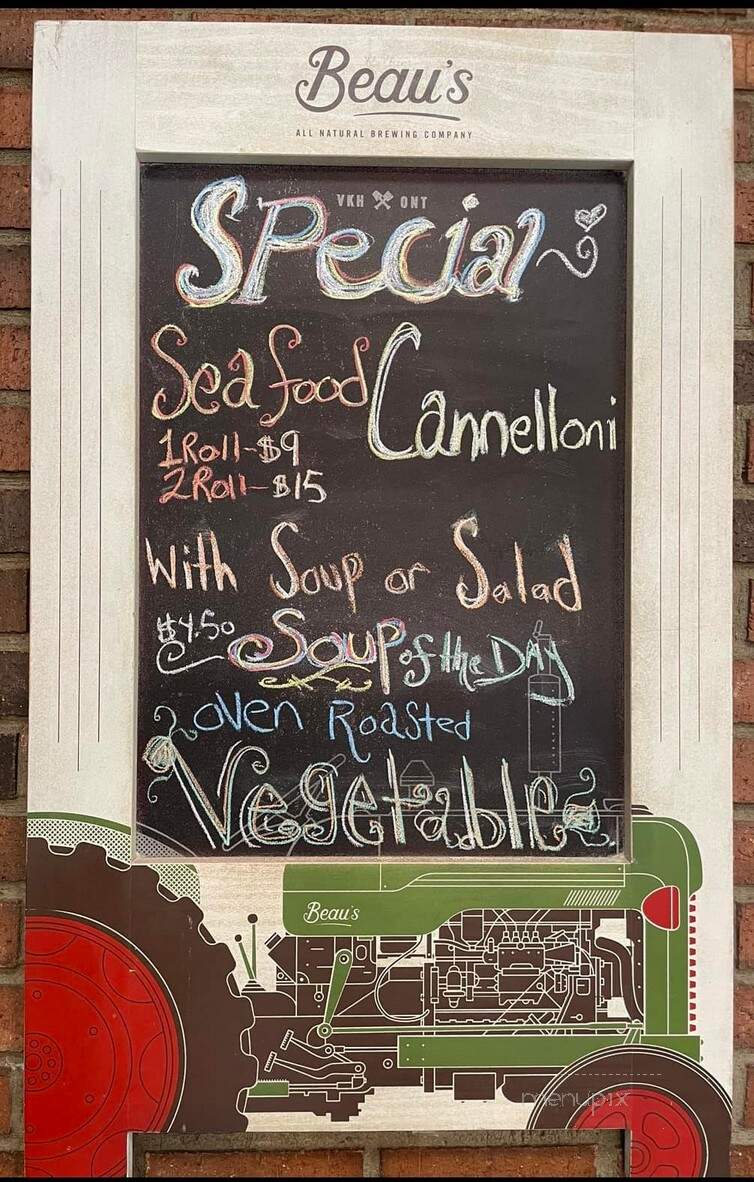 Beau's
ALL NATURAL BREWING COMPANY
VKH ONT
Special
Seafood Cannelloni
1Roll-$9
2Roll-$15
With Soup or Salad
$4.50 Soup of the DAY
oven Roasted
Vegetable
Beau's
menupix